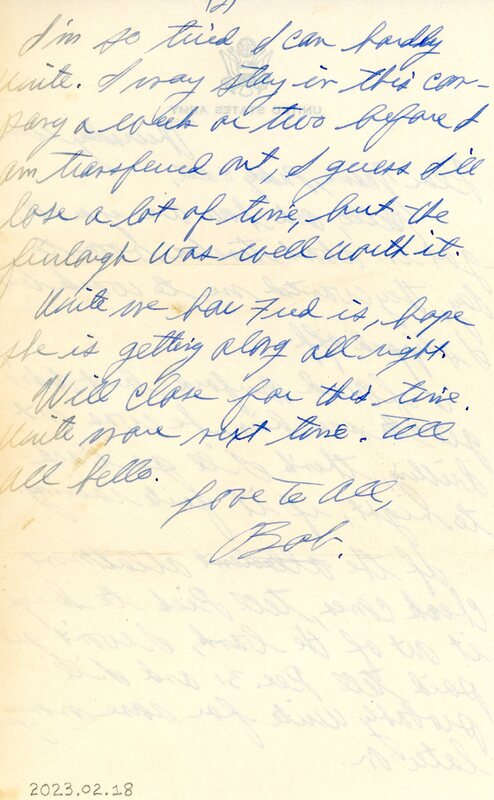 (2)
I'm so tired I can hardly
write. I may stay in this com-
pany a week or two before I
am transfered out, I guess I'll
lose a lot of time, but the
furlough was well worth it.
Write me how Fred is, hope
she is getting along all right.
Will close for this time.
Write more next time. Tell
all hello.
Love to All,
Bob.
2023.02.18